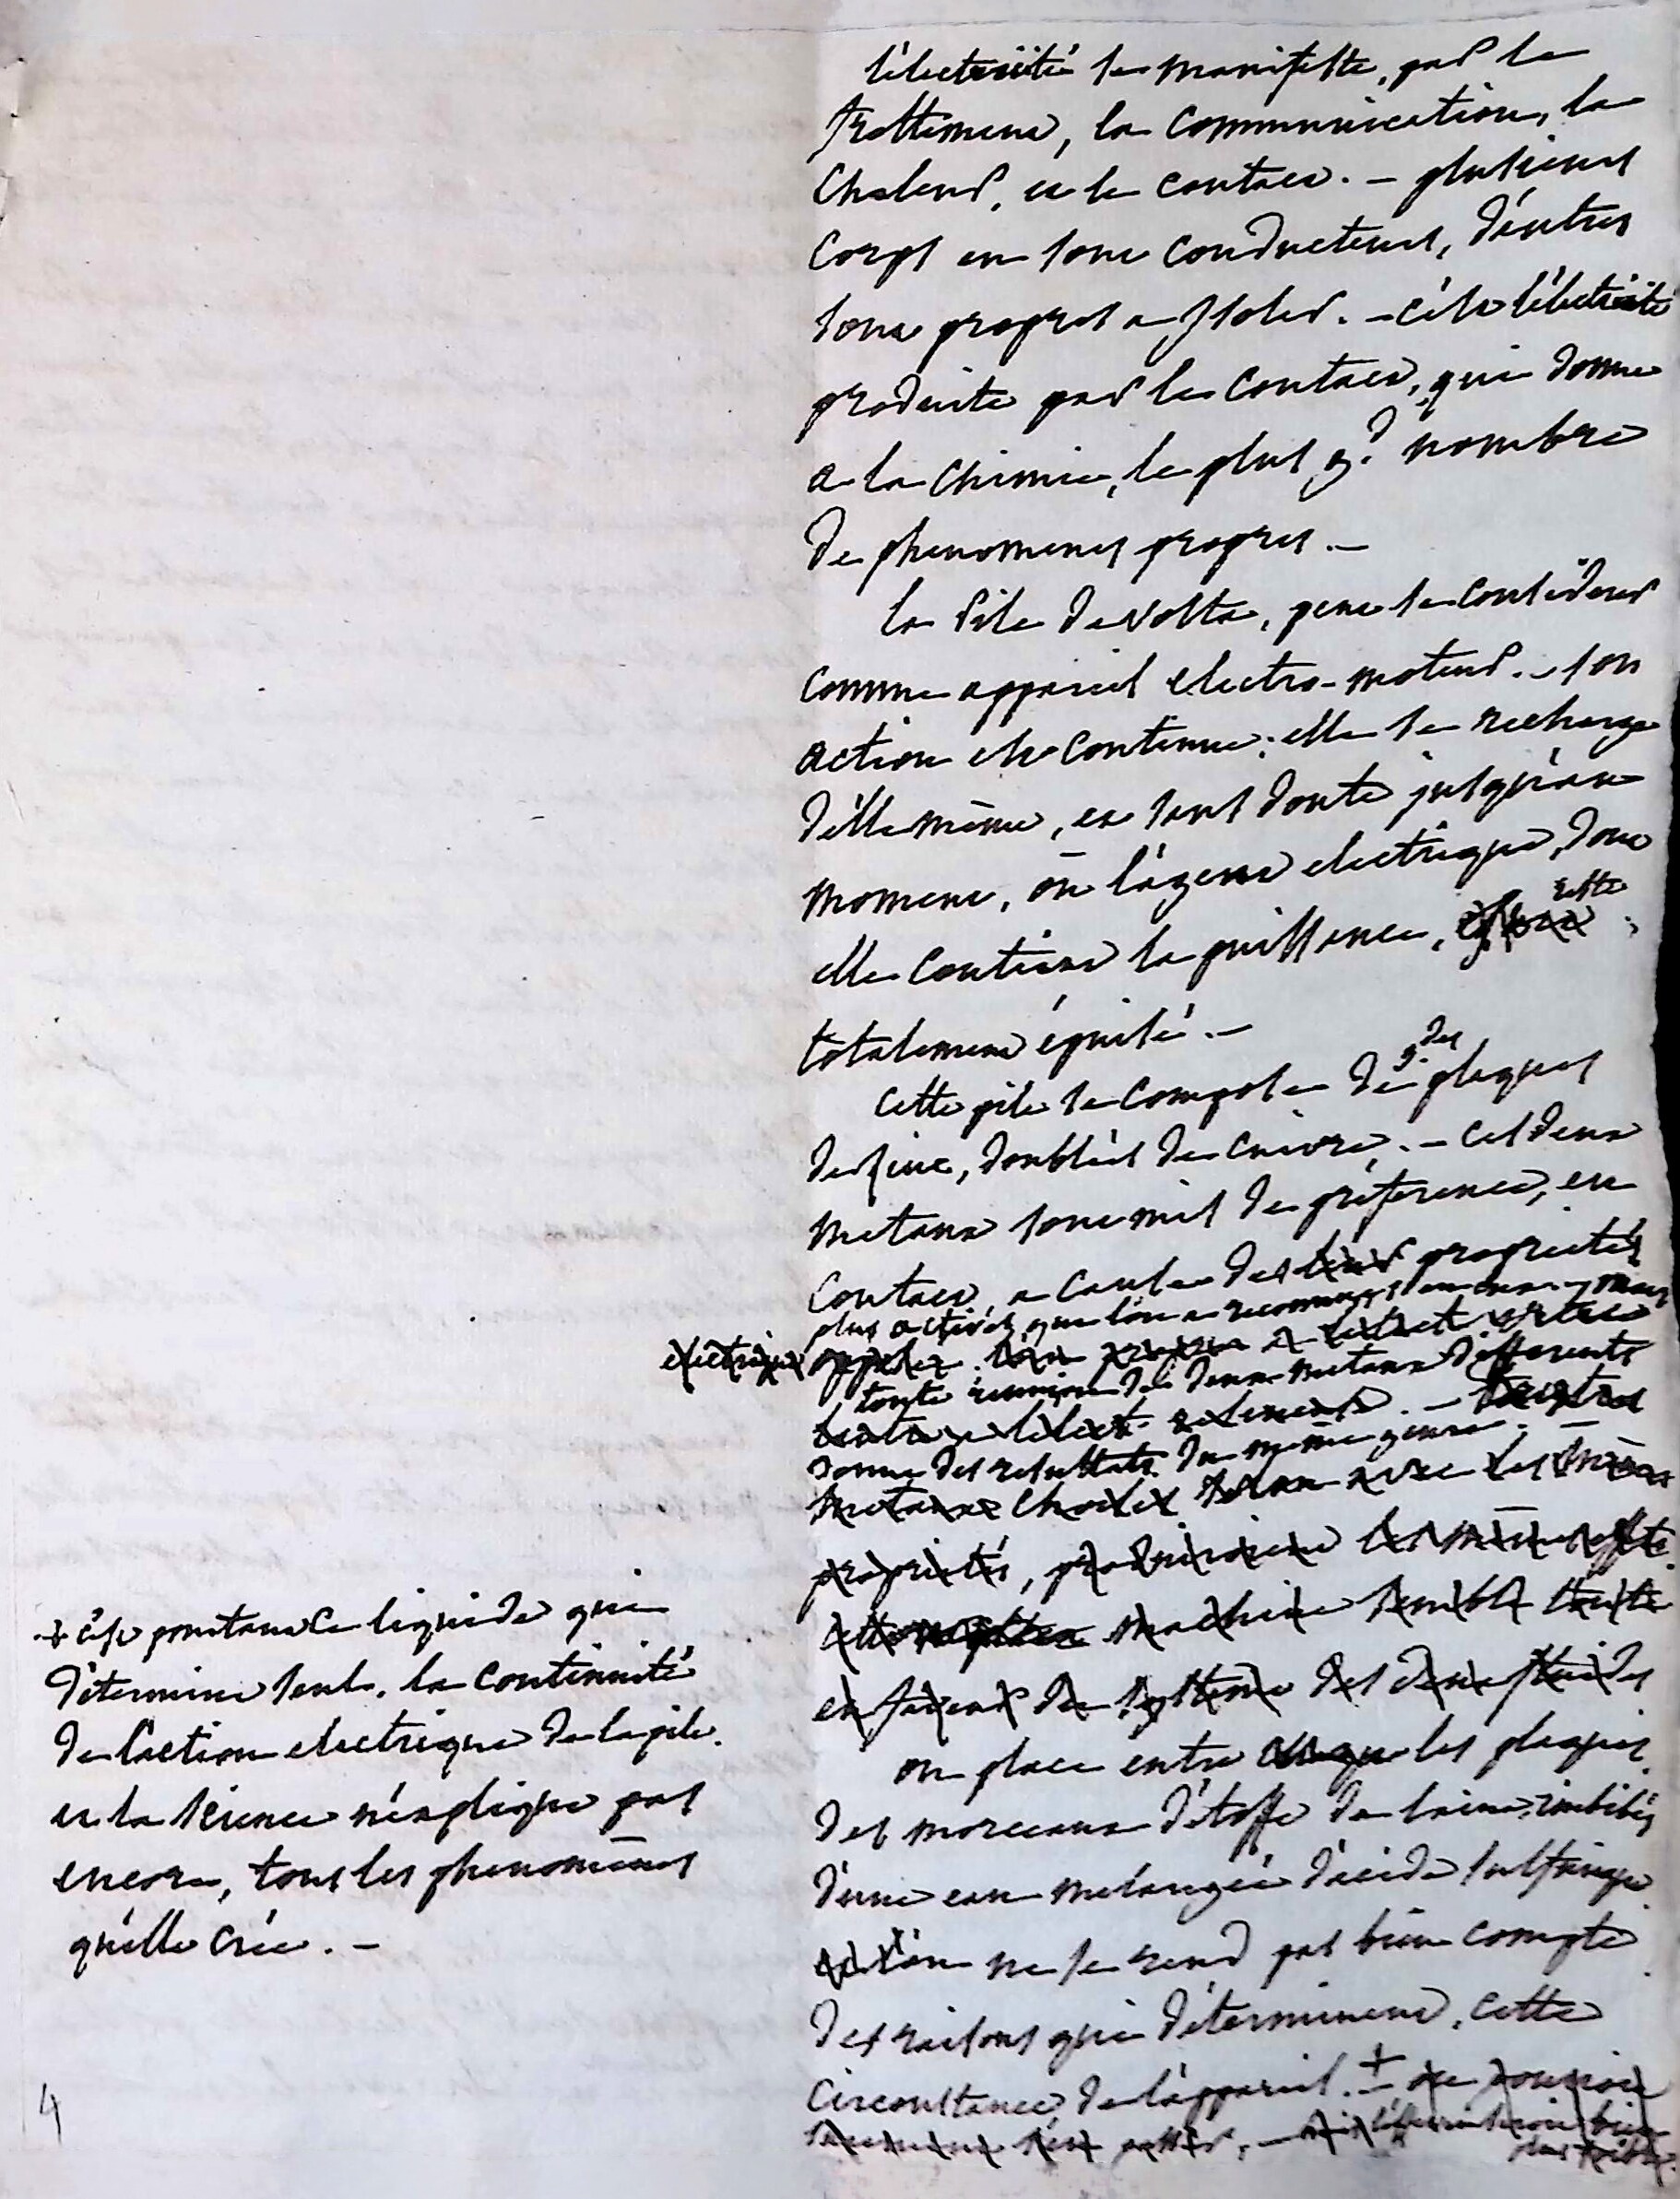 l'électricité se manifeste, par le
frottement, la communication, la
chaleur, et le contact. — plusieurs
corps en sont conducteurs, d'autres
sont propres a isoler. — c'est l'électricité
produite par le contact, qui donne
a la chimie, le plus gd nombre
de phenomenes propres. —
la Pile de Volta, peut se considerer
comme appareil electro-moteur. — son
action est continue; elle se recharge
d'elle même, et sans doute jusqu'au
moment, où l'agent electrique, dont
elle contient la puissance, reste
totalement épuisé. —
Cette pile se compose de gdes plaques
de zinc, doublées de cuivre. — ces deux
metaux sont mis de préférence, en
contact, a cause des leur proprietés
plus actives, que l'on a reconnues en eux. — mais
electrique
toute reunion de deux metaux differents
donne des resultats du même genre. —
metaux avec les mêmes
proprietés, produiroient les mêmes effets.
cette machine semble
en faveur du système des deux fluides
on place entre les plaques,
des morceaux d'étoffe de laine, imbibés
d'une eau melangée d'acide sulfurique
et l'on ne se rend pas bien compte
des raisons qui déterminent, cette
circonstance, de l'appareil. + — on pourroit
s'en passer, — bien
+ c'est pourtant ce liquide qui
détermine seul, la continuité
de l'action electrique de la pile.
et la science n'explique pas
encore, tous les phenomènes
qu'elle crée. —
4